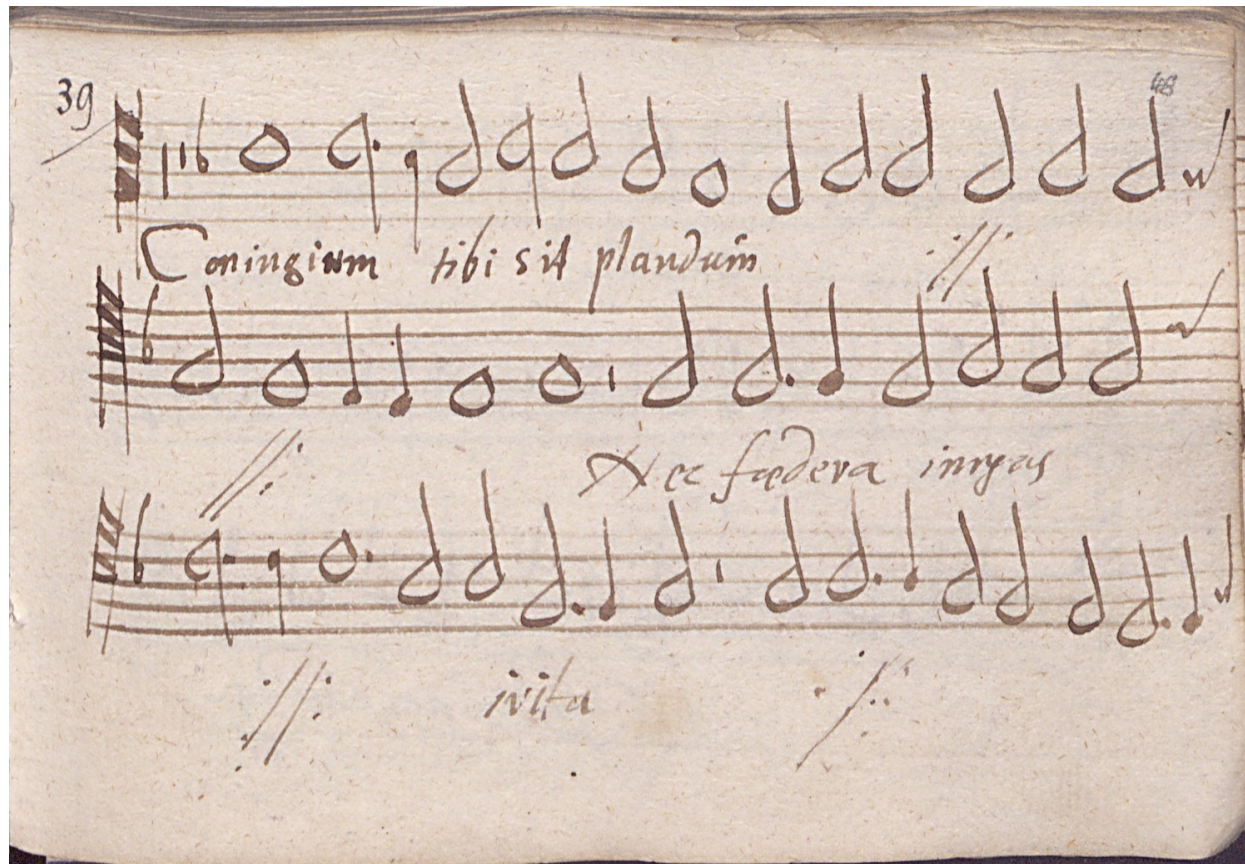 39
48
Coniugium tibi sit plaudum̄
Nec fœdera inipas
ivita